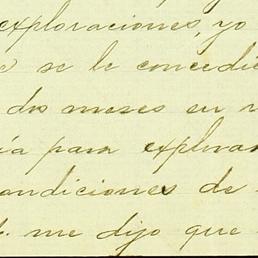 exploraciones, yo
se le concedie
dos meses en
ía para explorar
condiciones de
me dijo que